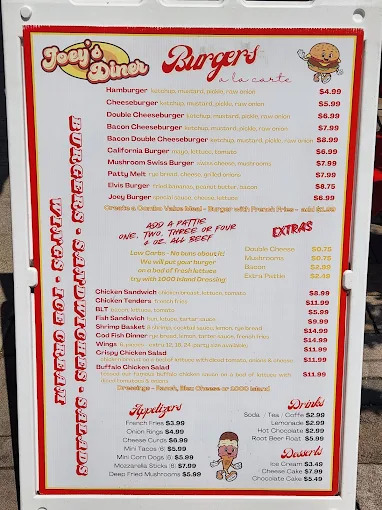 Joey's
Diner
Burgers
a la carte
Hamburger ketchup, mustard, pickle, raw onion $4.99
Cheeseburger ketchup, mustard, pickle, raw onion $5.99
Double Cheeseburger ketchup, mustard, pickle, raw onion $6.99
Bacon Cheeseburger ketchup, mustard, pickle, raw onion $7.99
Bacon Double Cheeseburger ketchup, mustard, pickle, raw onion $8.99
California Burger mayo, lettuce, tomato $6.99
Mushroom Swiss Burger swiss cheese, mushrooms $7.99
Patty Melt rye bread, cheese, grilled onions $7.99
Elvis Burger fried bananas, peanut butter, bacon $8.75
Joey Burger special sauce, cheese, lettuce $6.99
Create a Combo Value Meal - Burger with French Fries - add $1.99
ADD A PATTIE
ONE, TWO, THREE OR FOUR
4 OZ. ALL BEEF
Low Carbs - No buns about it!
We will put your burger
on a bed of fresh lettuce
try with 1000 Island Dressing
EXTRAS
Double Cheese $0.75
Mushrooms $0.75
Bacon
Extra Pattie $2.49
Chicken Sandwich lettuce, tomato $8.99
Chicken Tenders french fries $11.99
BLT bacon, lettuce, tomato $5.99
Fish Sandwich lettuce, tartar sauce $9.99
Shrimp Basket 8 shrimps, cocktail sauce, lemon, rye bread $14.99
Cod Fish Dinner rye bread, lemon, tartar sauce, french fries $14.99
Wings 6 pieces, extra 12, 18, 24, party size available $11.99
Crispy Chicken Salad
chicken breast on a bed of lettuce with diced tomato, onions & cheese $11.99
Buffalo Chicken Salad
buffalo chicken salad on a bed of lettuce with $11.99
diced tomatoes & onions
Dressings - Ranch, Blue Cheese or 1000 Island
BURGERS · SANDWICHES · SALADS
WINGS · ICE CREAM
Appetizers
French Fries $3.99
Onion Rings $4.99
Cheese Curds $6.99
Mini Tacos (6) $5.99
Mini Corn Dogs (6) $5.99
Mozzarella Sticks (6) $7.99
Deep Fried Mushrooms $5.99
Drinks
Soda / Tea / Coffe $2.99
Lemonade $2.99
Hot Chocolate $2.99
Root Beer Float $5.99
Desserts
Ice Cream $3.49
Cheese Cake $7.99
Chocolate Cake $5.49